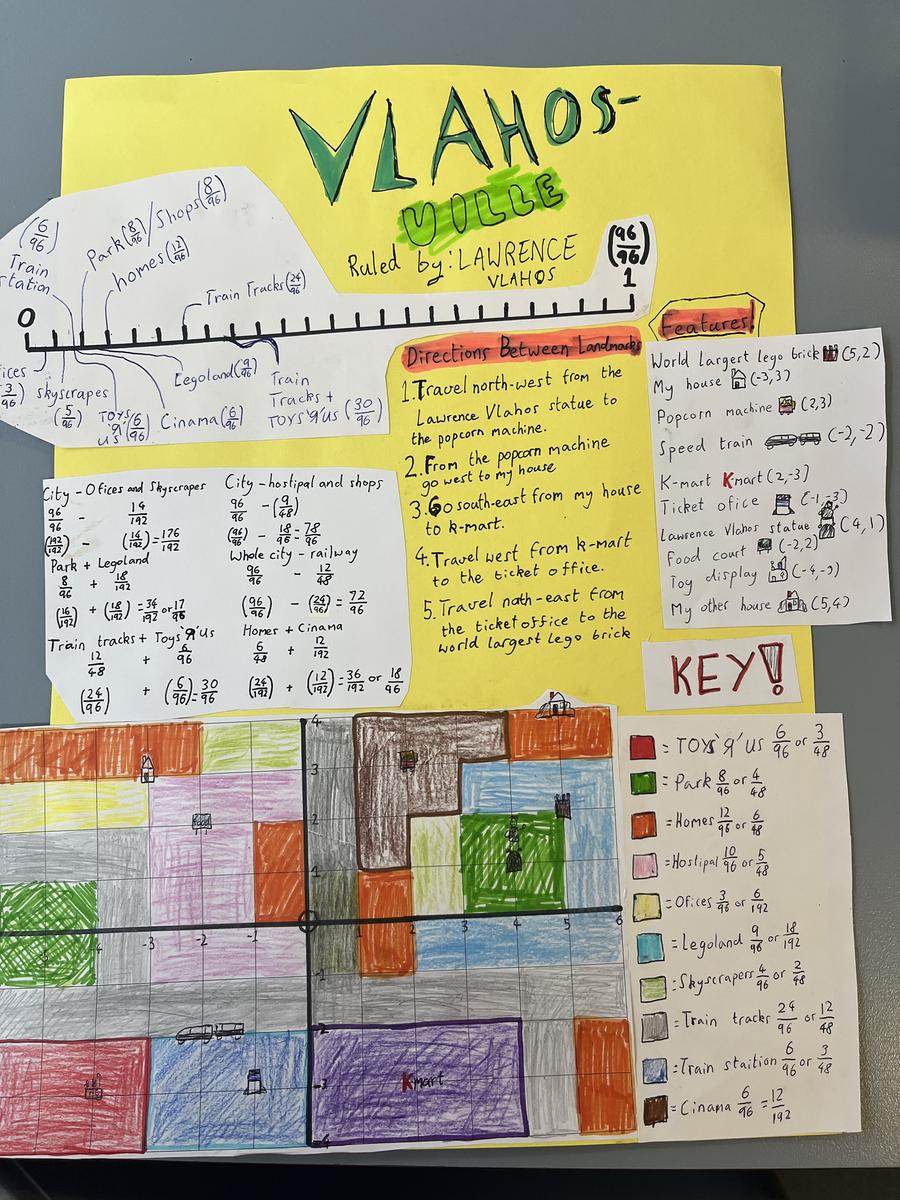 VLAHOS-
VILLE
Ruled by: LAWRENCE
VLAHOS
(6/96)
Train
station
Park(8/96)/Shops(8/96)
homes(12/96)
Train Tracks(24/96)
(96/96)
1
0
ices
3/96)
skyscrapes
(5/96)
Toys
'Я'
us (6/96)
Cinama(6/96)
Legoland(9/96)
Train
Tracks +
TOYS'Я'US (30/96)
Directions Between Landmarks
1.Travel north-west from the
Lawrence Vlahos statue to
the popcorn machine.
2.From the popcorn machine
go west to my house
3.Go south-east from my house
to k-mart.
4.Travel west from k-mart
to the ticket office.
5.Travel noth-east from
the ticketoffice to the
world largest lego brick
Features!
World largest lego brick (5,2)
My house (-3,3)
Popcorn machine (2,3)
Speed train (-2,-2)
K-mart Kmart (2,-3)
Ticket ofice (-1,-3)
Lawrence Vlahos statue (4,1)
Food court (-2,2)
Toy display (-4,-3)
My other house (5,4)
City - Ofices and Skyscrapes
96/96 - 14/192
(192/192) - (16/192)=176/192
Park + Legoland
8/96 + 18/192
(16/192) + (18/192)=34/192 or 17/96
Train tracks + Toys'Я'Us
12/48 + 6/96
(24/96) + (6/96)=30/96
City - hostipal and shops
96/96 - (9/48)
(96/96) - 18/96=78/96
Whole city - railway
96/96 - 12/48
(96/96) - (24/96)=72/96
Homes + Cinama
6/48 + 12/192
(24/192) + (12/192)=36/192 or 18/96
KEY!
= TOYS'Я'US 6/96 or 3/48
= Park 8/96 or 4/48
= Homes 12/96 or 6/48
= Hostipal 10/96 or 5/48
= Ofices 3/96 or 6/192
= Legoland 9/96 or 18/192
= Skyscrapers 4/96 or 2/48
= Train tracks 24/96 or 12/48
= Train staition 6/96 or 3/48
= Cinama 6/96 = 12/192
4
3
2
1
-3 -2 -1 2 3 4 5 6
-1
-2
-3
-4
Food
Kmart